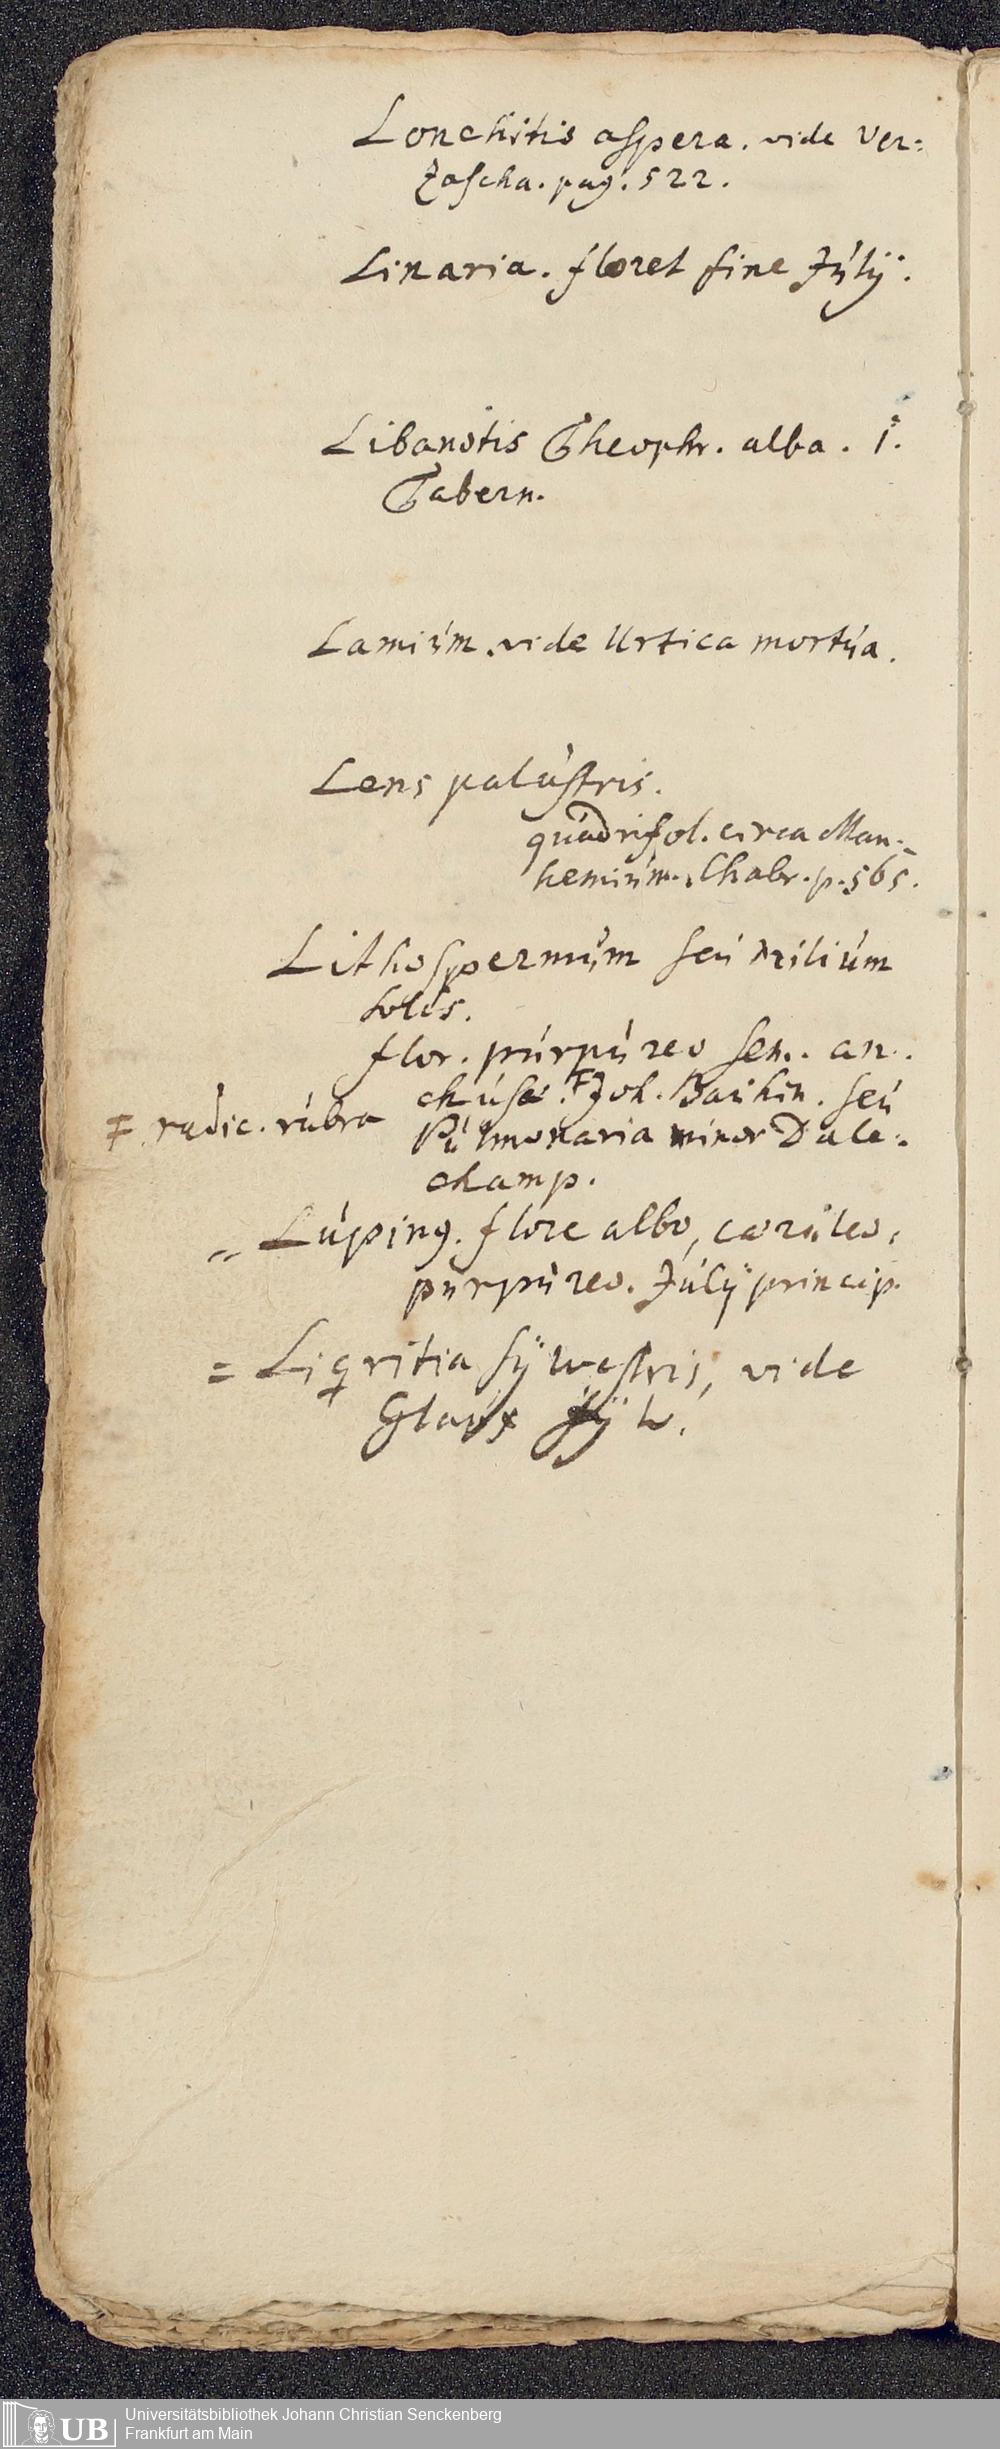 Lonchitis aspera. vide Ver:
zascha. pag. 522.
Linaria. floret fine Julÿ.
Libanotis Theophr. alba. 1.
Tabern.
Lamium. vide Urtica mortua.
Lens palustris.
quadrifol. circa Man:
hemium. Chabr. p. 565.
Lithospermum seu Milium
solis.
flor. purpureo sem. an:
chusæ. Ŧ Joh. Bauhin. seu
Ŧ radic. rubra
Pulmonaria minor Dale:
champ.
„ Lupinꝯ. flore albo, cæruleo,
purpureo. Julÿ princip.
= Liqritia sÿlvestris, vide
Glaux sÿlv.
UB
Universitätsbibliothek Johann Christian Senckenberg
Frankfurt am Main